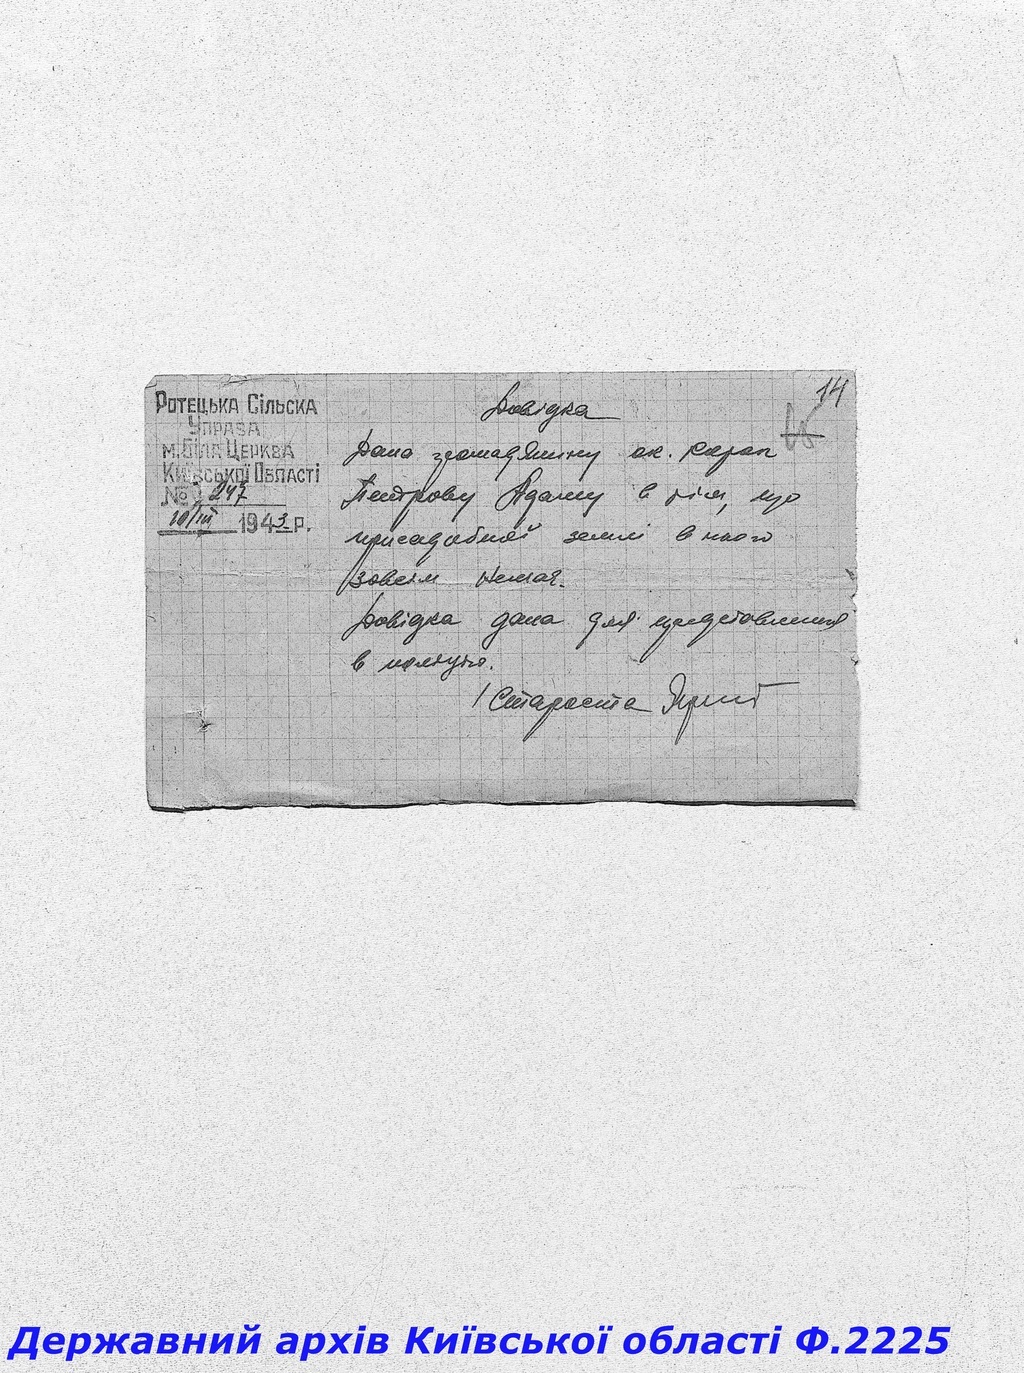 14
Ротецька Сільска
Управа
м. Біла Церква
Київської Області
№ 247
10/III 1943 р.
Довідка
Дана громадянину ок.
Петрову Адаму в тім, що
присадибної землі в нього
зовсім немає.
Довідка дана для представлення
в поліцію.
Староста
Державний архів Київської області Ф.2225